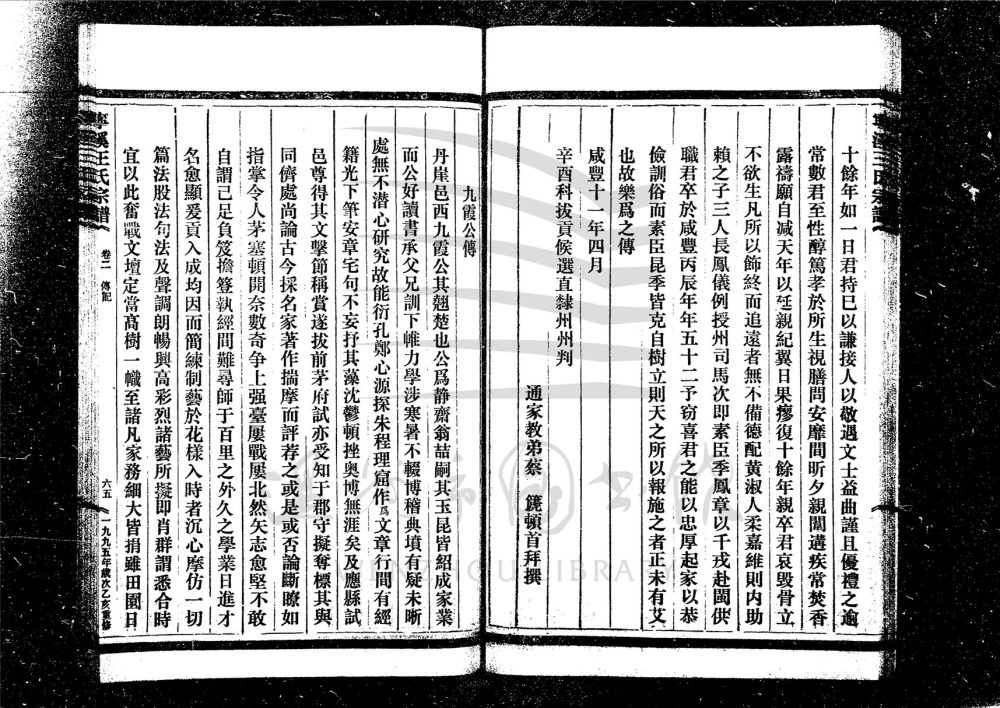 十餘年如一日君持己以謙接人以敬遇文士益曲謹且優禮之逾
常數君至性醇篤孝於所生視膳問安靡間昕夕親闈遘疾常焚香
露禱願自减天年以延親紀翼日果瘳復十餘年親卒君哀毀骨立
不欲生凡所以飾終而追遠者無不備德配黃淑人柔嘉維則內助
賴之子三人長鳳儀例授州司馬次即素臣季鳳章以千戎赴閩供
職君卒於咸豐丙辰年年五十二予窃喜君之能以忠厚起家以恭
儉訓俗而素臣昆季皆克自樹立則天之所以報施之者正未有艾
也故樂爲之傳
咸豐十一年四月
辛酉科拔貢候選直隸州州判
通家教弟蔡 篪頓首拜撰
九霞公傳
丹崖邑西九霞公其翹楚也公爲静齋翁喆嗣其玉昆皆紹成家業
而公好讀書承父兄訓下帷力學涉寒暑不輟博稽典墳有疑未晰
處無不潜心研究故能衍孔鄭心源探朱程理窟作爲文章行間有經
籍光下筆安章宅句不妄抒其藻沈鬱頓挫奥博無涯矣及應縣試
邑尊得其文擊節稱賞遂拔前茅府試亦受知于郡守擬奪標其與
同儕處尚論古今採名家著作揣摩而評荐之或是或否論斷瞭如
指掌令人茅塞頓開奈數奇争上强臺屢戰屢北然矢志愈堅不敢
自謂己足負笈擔簦執經問難尋師于百里之外久之學業日進才
名愈顯爰貢入成均因而簡練制藝於花樣入時者沉心摩仿一切
篇法股法句法及聲調朗暢興高彩烈諸藝所擬即肖群謂悉合時
宜以此奮戰文壇定當高樹一幟至諸凡家務細大皆捐雖田園日
寧溪王氏宗譜
卷二 傳記
六五
一九九五年歲次乙亥重修